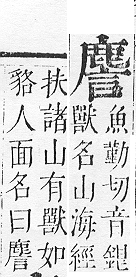 䴦
魚勤切音銀
獸名山海經
扶諸山有獸如
貉人面名曰䴦